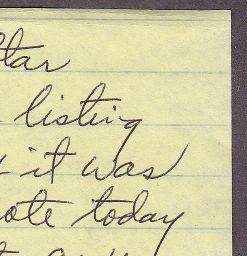 tar
listing
it was
ote today